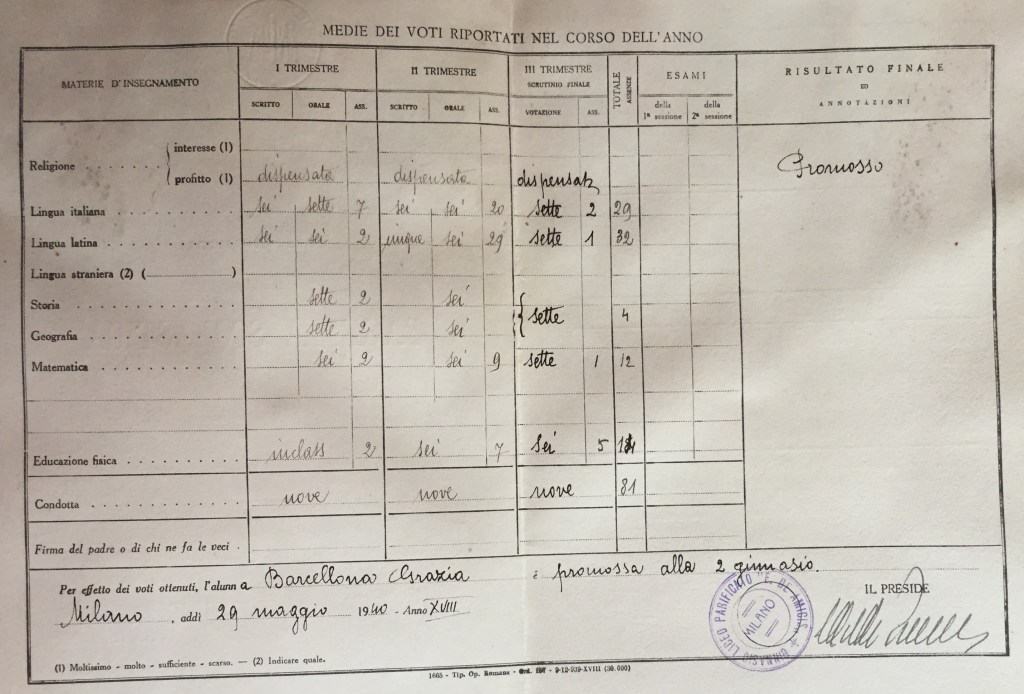 MEDIE DEI VOTI RIPORTATI NEL CORSO DELL'ANNO
MATERIE D'INSEGNAMENTO I TRIMESTRE II TRIMESTRE III TRIMESTRE SCRUTINIO FINALE TOTALE ASSENZE ESAMI RISULTATO FINALE ED ANNOTAZIONI
SCRITTO ORALE ASS. SCRITTO ORALE ASS. VOTAZIONE ASS. della 1ª sessione della 2ª sessione
Religione interesse (1)
profitto (1) dispensata dispensata dispensata Promosso
Lingua italiana sei sette 7 sei sei 20 sette 2 29
Lingua latina sei sei 2 cinque sei 29 sette 1 32
Lingua straniera (2) ( )
Storia sette 2 sei sette 4
Geografia sette 2 sei
Matematica sei 2 sei 9 sette 1 12
Educazione fisica inclass 2 sei 7 sei 5
Condotta nove nove nove 81
Firma del padre o di chi ne fa le veci
Per effetto dei voti ottenuti, l'alunna Barcellona Grazia è promossa alla 2 ginnasio.
Milano, addì 29 maggio 1940 - Anno XVIII
IL PRESIDE
GINNASIO LICEO PARIFICATO "E. DE AMICIS"
MILANO
(1) Moltissimo - molto - sufficiente - scarso. — (2) Indicare quale.
1665 - Tip. Op. Romana - Ord. - 9-12-939-XVIII (30.000)